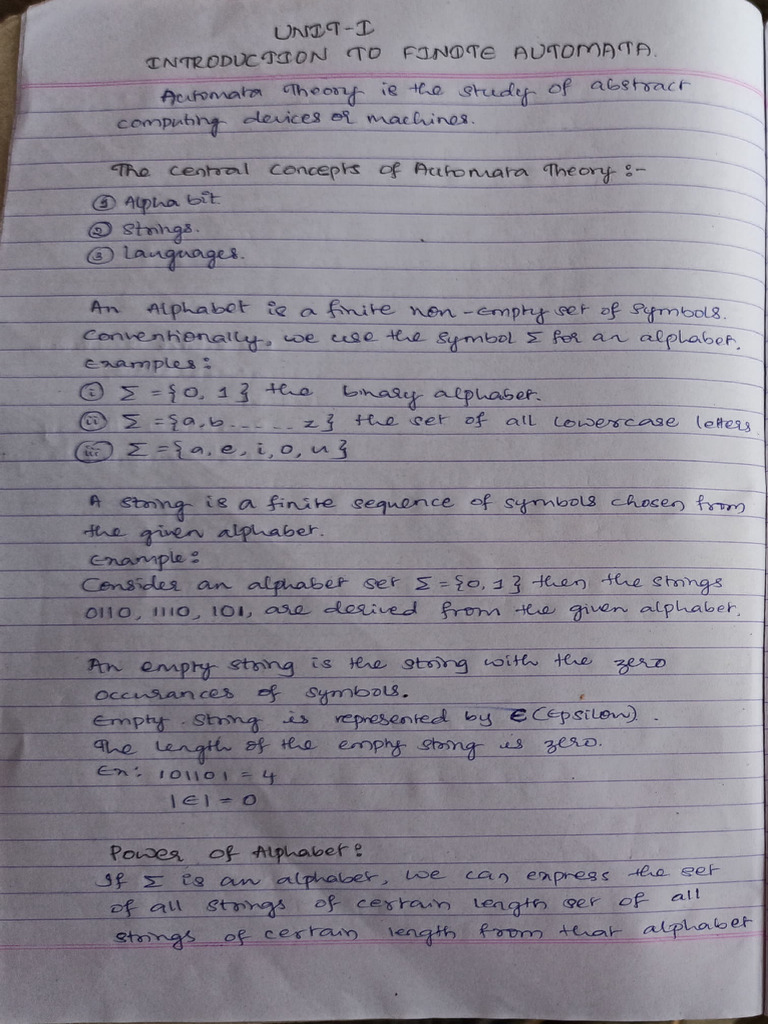 UNIT-I
INTRODUCTION TO FINITE AUTOMATA.
Automata Theory is the study of abstract
computing devices or machines.
The central concepts of Automata Theory :-
① Alpha bit
② strings.
③ Languages.
An Alphabet is a finite non-empty set of symbols.
Conventionally, we use the symbol Σ for an alphabet.
Examples:
(i) Σ = {0, 1} the binary alphabet.
(ii) Σ = {a, b ..... z} the set of all lowercase letters
(iii) Σ = {a, e, i, o, u}
A string is a finite sequence of symbols chosen from
the given alphabet.
Example:
Consider an alphabet set Σ = {0, 1} then the strings
0110, 1110, 101, are derived from the given alphabet.
An empty string is the string with the zero
occurances of symbols.
Empty string is represented by ∈ (Epsilon).
The length of the empty string is zero.
Ex: 101101 = 4
|∈| = 0
Power of Alphabet:
If Σ is an alphabet, we can express the set
of all strings of certain length set of all
strings of certain length from that alphabet